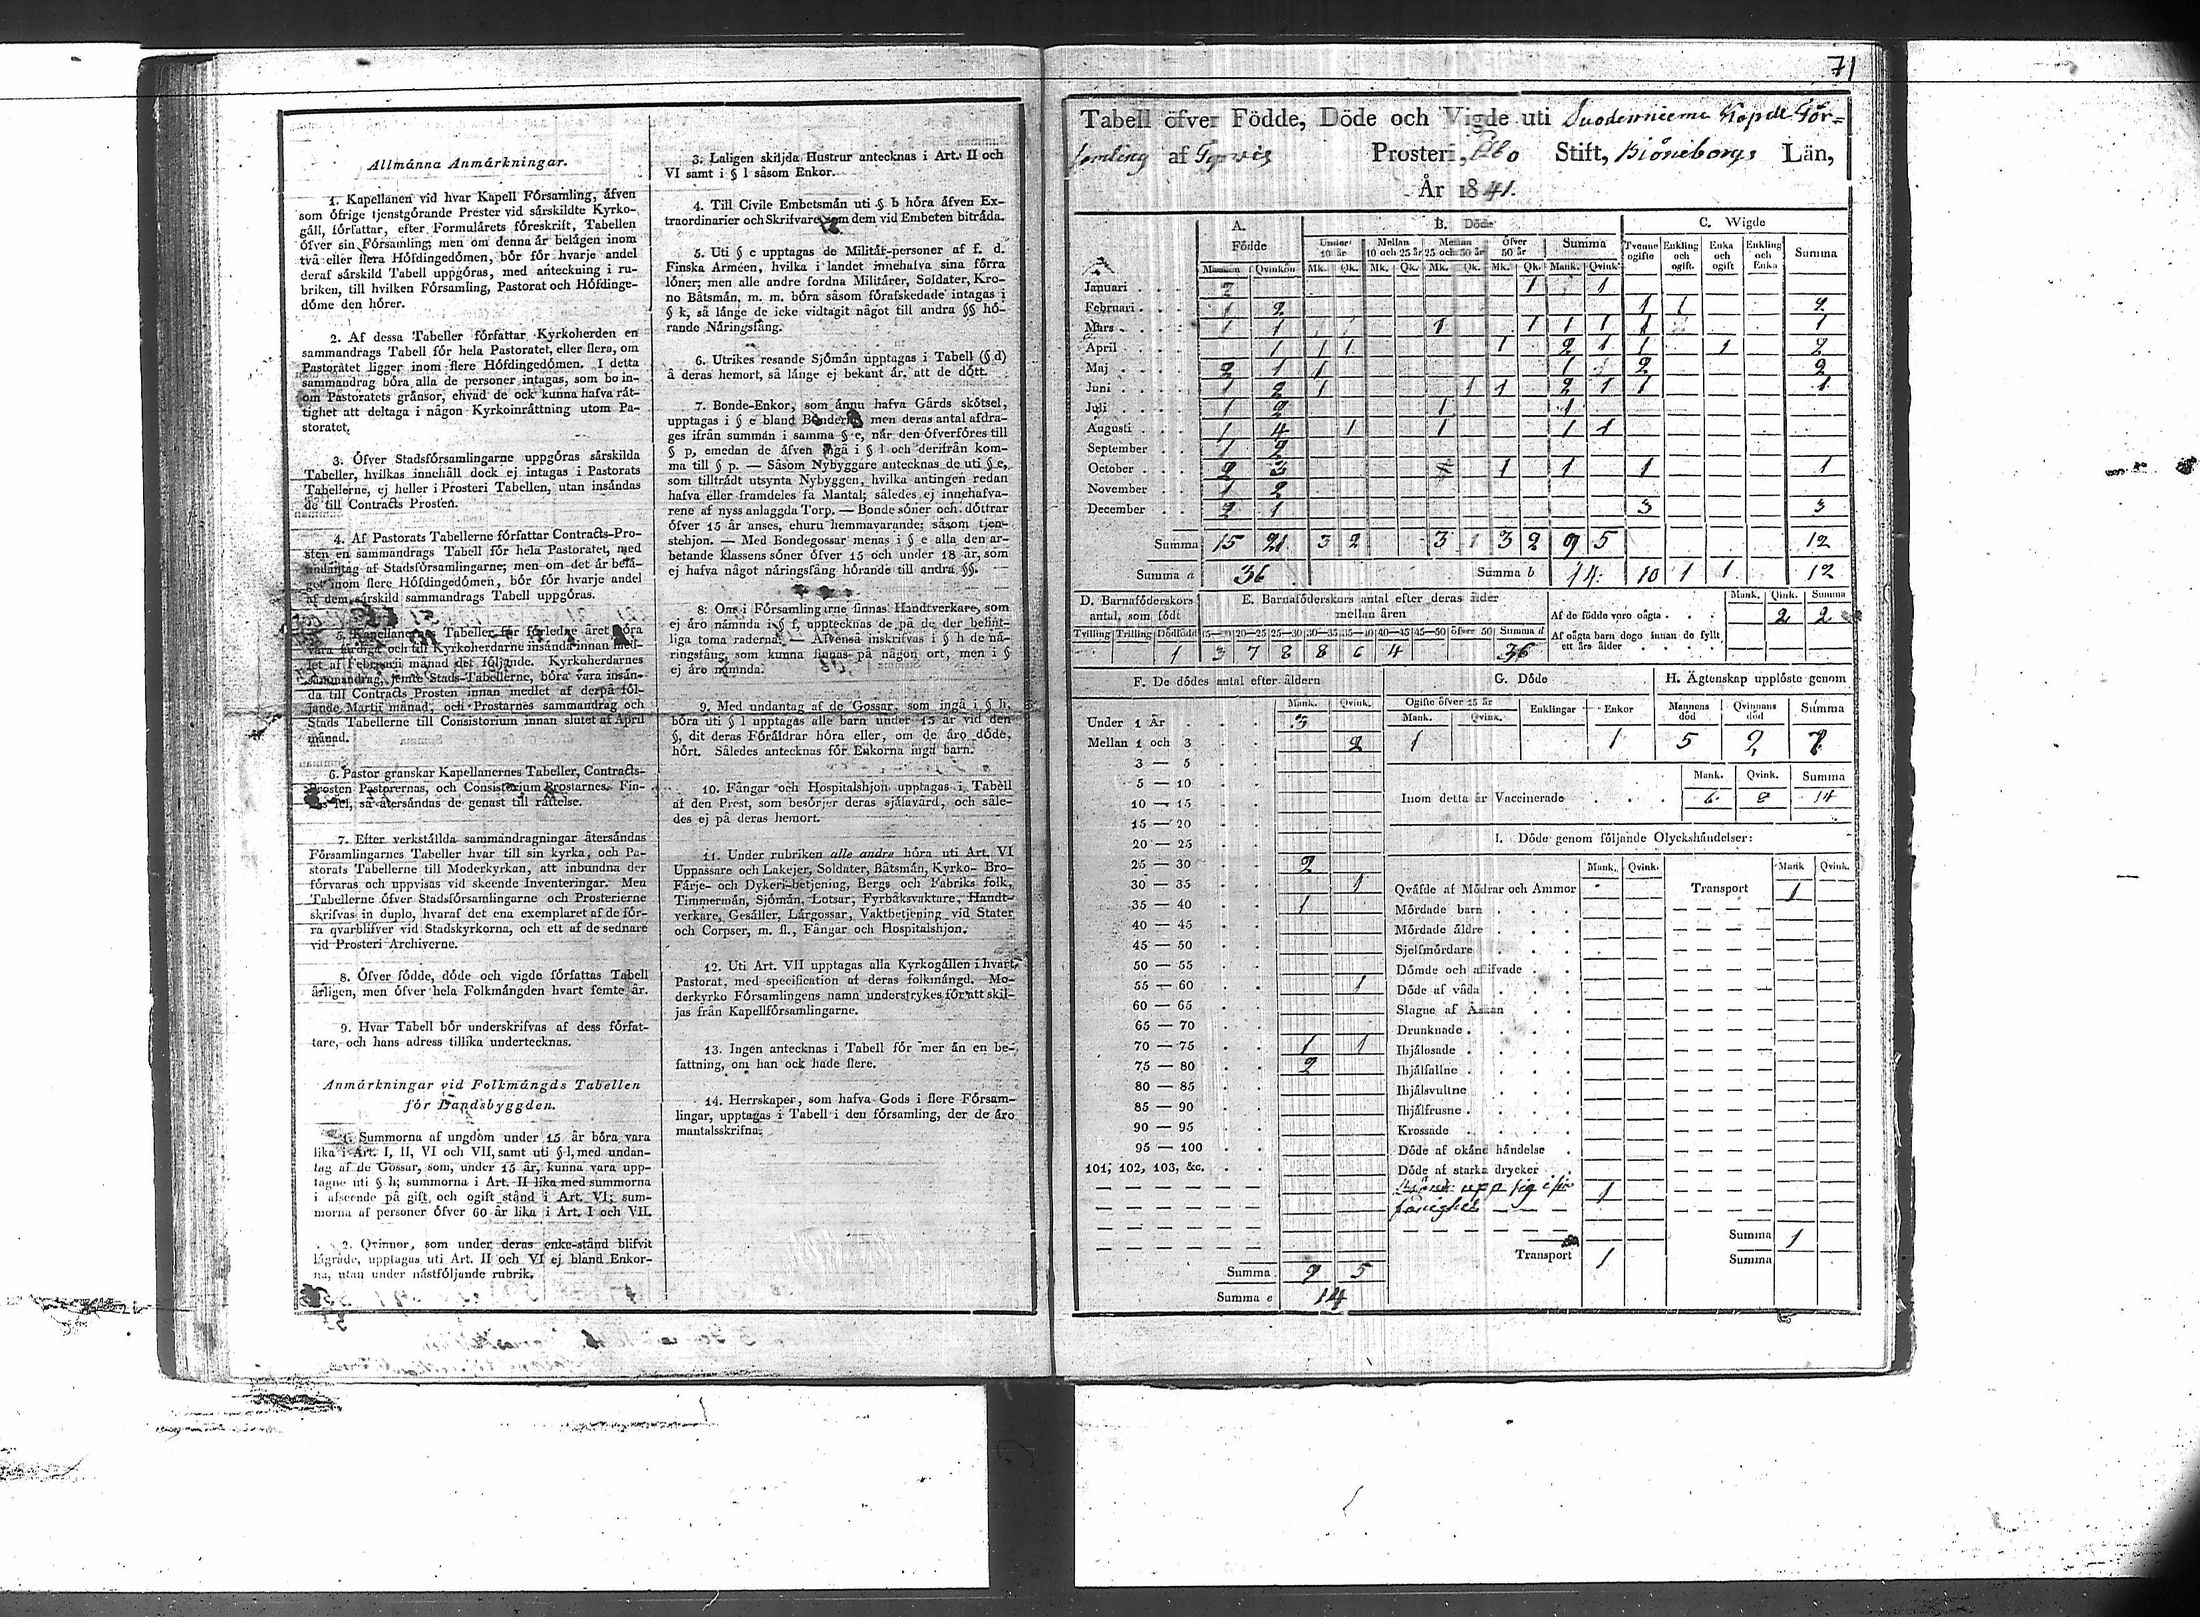 Allmánna Anmárkningar.
1. Kapellanen vid hvar Kapell Fórsamling, áfven
som ófrige tjenstgórande Prester vid sárskildte Kyrko-
gåll, fórfattar, efter Formulárets fóreskrift, Tabellen
ófver sin Fórsamling; men om denna år belågen inom
två eller flera Hófdingedómen, bór fór hvarje andel
deraf sårskild Tabell uppgóras, med anteckning i ru-
briken, till hvilken Fórsamling, Pastorat och Hófdinge-
dóme den hórer.
2. Af dessa Tabeller fórfattar Kyrkoherden en
sammandrags Tabell fór hela Pastoratet, eller flera, om
Pastoratet ligger inom flere Hófdingedómen. I detta
sammandrag bóra alla de personer intagas, som bo in-
om Pastoratets grånsor, ehvad de ock kunna hafva råt-
tighet att deltaga i någon Kyrkoinråttning utom Pa-
storatet.
3. Ófver Stadsfórsamlingarne uppgóras sårskilda
Tabeller, hvilkas innehåll dock ej intagas i Pastorats
Tabellerne, ej heller i Prosteri Tabellen, utan insåndas
de till Contracts Prosten.
4. Af Pastorats Tabellerne fórfattar Contracts-Pro-
sten en sammandrags Tabell fór hela Pastoratet, med
undantag af Stadsfórsamlingarne; men om det år belå-
get inom flere Hófdingedómen, bór fór hvarje andel
af dem sårskild sammandrags Tabell uppgóras.
5. Kapellanernes Tabeller fór fórledne året bóra
vara fårdiga och till Kyrkoherdarne insånda innan med-
let af Februarii månad det fóljande. Kyrkoherdarnes
sammandrag, jemte Stads-Tabellerne, bóra vara insån-
da till Contracts Prosten innan medlet af derpå fól-
jande Martii månad, och Prostarnes sammandrag och
Stads Tabellerne till Consistorium innan slutet af April
månad.
6. Pastor granskar Kapellanernes Tabeller, Contracts-
Prosten Pastorernas, och Consistorium Prostarnes. Fin-
nes fel, så återsåndas de genast till råttelse.
7. Efter verkstållda sammandragningar återsåndas
Fórsamlingarnes Tabeller hvar till sin kyrka, och Pa-
storats Tabellerne till Moderkyrkan, att inbundna der
fórvaras och uppvisas vid skeende Inventeringar. Men
Tabellerne ófver Stadsfórsamlingarne och Prosterierne
skrifvas in duplo, hvaraf det ena exemplaret af de fór-
ra qvarblifver vid Stadskyrkorna, och ett af de sednare
vid Prosteri Archiverne.
8. Ófver fódde, dóde och vigde fórfattas Tabell
årligen, men ófver hela Folkmångden hvart femte år.
9. Hvar Tabell bór underskrifvas af dess fórfat-
tare, och hans adress tillika undertecknas.
Anmárkningar vid Folkmångds Tabellen
fór Landsbyggden.
1. Summorna af ungdom under 15 år bóra vara
lika i Art. I, II, VI och VII, samt uti § l, med undan-
tag af de Gossar, som, under 15 år, kunna vara upp-
tagne uti § h; summorna i Art. II lika med summorna
i afseende på gift och ogift stånd i Art. VI; sum-
morna af personer ófver 60 år lika i Art. I och VII.
2. Qvinnor, som under deras enke-stånd blifvit
lågrade, upptagas uti Art. II och VI ej bland Enkor-
na, utan under nåstfóljande rubrik.
3. Laligen skiljda Hustrur antecknas i Art. II och
VI samt i § l såsom Enkor.
4. Till Civile Embetsmån uti § b hóra åfven Ex-
traordinarier och Skrifvare, som dem vid Embeten bitråda.
5. Uti § c upptagas de Militår-personer af f. d.
Finska Arméen, hvilka i landet innehafva sina fórra
lóner; men alle andre fordna Militårer, Soldater, Kro-
no Båtsmån, m. m. bóra såsom fórafskedade intagas i
§ k, så långe de icke vidtagit något till andra §§ hó-
rande Nåringsfång.
6. Utrikes resande Sjómån upptagas i Tabell (§ d)
å deras hemort, så långe ej bekant år, att de dótt.
7. Bonde-Enkor, som ånnu hafva Gårds skótsel,
upptagas i § e bland Bónder, men deras antal afdra-
ges ifrån summån i samma § e, når den ófverfóres till
§ p, emedan de åfven ingå i § l och derifrån kom-
ma till § p. — Såsom Nybyggare antecknas de uti § e,
som tilltrådt utsynta Nybyggen, hvilka antingen redan
hafva eller framdeles få Mantal; således ej innehafva-
rene af nyss anlaggda Torp. — Bonde sóner och dóttrar
ófver 15 år anses, ehuru hemmavarande, såsom tjen-
stehjon. — Med Bondegossar menas i § e alla den ar-
betande klassens sóner ófver 15 och under 18 år, som
ej hafva något nåringsfång hórande till andra §§.
8. Om i Fórsamlingarne finnas Handtverkare, som
ej åro nåmnda i § f, upptecknas de på de der befint-
liga toma raderna. — Åfvenså inskrifvas i § h de nå-
ringsfång, som kunna finnas på någon ort, men i §
ej åro nåmnda.
9. Med undantag af de Gossar, som ingå i § h,
bóra uti § l upptagas alle barn under 15 år vid den
§, dit deras Fóråldrar hóra eller, om de åro dóde,
hórt. Således antecknas fór Enkorna inga barn.
10. Fångar och Hospitalshjon upptagas i Tabell
af den Prest, som besórjer deras sjålavård, och såle-
des ej på deras hemort.
11. Under rubriken alle andre hóra uti Art. VI
Uppassare och Lakejer, Soldater, Båtsmån, Kyrko- Bro-
Fårje- och Dykeri-betjening, Bergs och Fabriks folk,
Timmermån, Sjómån, Lotsar, Fyrbåksvaktare, Handt-
verkare, Gesåller, Lårgossar, Vaktbetjening vid Stater
och Corpser, m. fl., Fångar och Hospitalshjon.
12. Uti Art. VII upptagas alla Kyrkogållen i hvart
Pastorat, med specification af deras folkmångd. Mo-
derkyrko Fórsamlingens namn understrykes fór att skil-
jas från Kapellfórsamlingarne.
13. Ingen antecknas i Tabell fór mer ån en be-
fattning, om han ock hade flere.
14. Herrskaper, som hafva Gods i flere Fórsam-
lingar, upptagas i Tabell i den fórsamling, der de åro
mantalsskrifna.
71
Tabell öfver Födde, Döde och Vigde uti Suodenniemi Kapell För-
samling af Tyrvis Prosteri, Åbo Stift, Biörneborgs Län,
År 1841.
A. Födde B. Döde C. Wigde
Under 10 år Mellan 10 och 25 år Mellan 25 och 50 år öfver 50 år Summa Tvenne ogifte Enkling och ogift. Enka och ogift Enkling och Enka Summa
Mankön Qvinkön Mk. Qk. Mk. Qk. Mk. Qk. Mk. Qk. Mank. Qvink.
Januari 2 1 1
Februari 1 2 1 1 2
Mars 1 1 1 1 1 1 1 1
April 1 1 1 1 2 1 1 1 2
Maj 2 1 1 1 2 2
Juni 1 2 1 1 1 2 1 1 1
Juli 1 2 1 1
Augusti 1 4 1 1 1 1
September 1 2
October 2 3 1 1 1 1
November 1 2
December 2 1 3 3
Summa 15 21 3 2 3 1 3 2 9 5 12
Summa a 36 Summa b 14 10 1 1 12
D. Barnaföderskors antal, som födt
E. Barnaföderskors antal efter deras ålder mellan åren
Mank. Qink. Summa
Af de födde voro oägta 2 2
Af oägta barn dogo innan de fyllt ett års ålder
Tvilling Trilling Dödfödd 15—20 20—25 25—30 30—35 35—40 40—45 45—50 öfver 50 Summa d
1 3 7 8 8 6 4 36
F. De dödes antal efter åldern
Mank. Qvink.
Under 1 År 3
Mellan 1 och 3 2
3 — 5
5 — 10
10 — 15
15 — 20
20 — 25
25 — 30 2
30 — 35 1
35 — 40 1
40 — 45
45 — 50
50 — 55
55 — 60 1
60 — 65
65 — 70
70 — 75 1 1
75 — 80 2
80 — 85
85 — 90
90 — 95
95 — 100
101, 102, 103, &c.
Summa 9 5
Summa e 14
G. Döde
Ogifte öfver 15 år Enklingar Enkor
Mank. Qvink.
1 1
H. Ägtenskap upplöste genom
Mannens död Qvinnans död Summa
5 2 7
Mank. Qvink. Summa
Inom detta år Vaccinerade 6 8 14
I. Döde genom följande Olyckshändelser:
Mank. Qvink. Mank Qvink.
Qväfde af Mödrar och Ammor Transport 1
Mördade barn
Mördade äldre
Sjelfmördare
Dömde och aflifvade
Döde af våda
Slagne af Åskan
Drunknade
Ihjälosade
Ihjälfallne
Ihjälsvultne
Ihjälfrusne
Krossade
Döde af okänd händelse
Döde af starka drycker
upp sig i 1
Summa 1
Transport 1 Summa